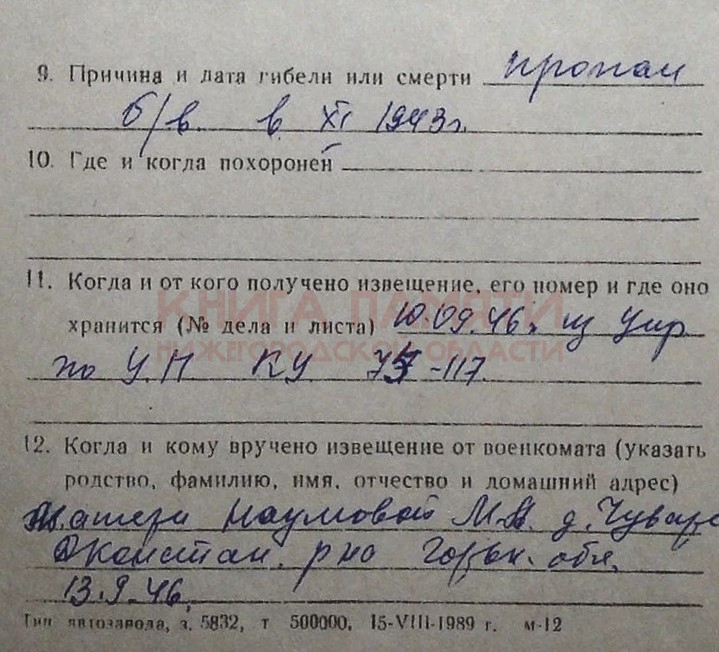 9. Причина и дата гибели или смерти пропал
б/в. в XI 1943г.
10. Где и когда похоронен
11. Когда и от кого получено извещение, его номер и где оно
КНИГА ПАМЯТИ
хранится (№ дела и листа) 10.09.46г. из Упр
НИЖЕГОРОДСКОЙ ОБЛАСТИ
по У.П КУ -117.
12. Когда и кому вручено извещение от военкомата (указать
родство, фамилию, имя, отчество и домашний адрес)
матери Наумовой М. д.
р на Горьк. обл.
13.9.46.
Тип. автозавода, з. 5832, т 500000, 15-VIII-1989 г. м-12